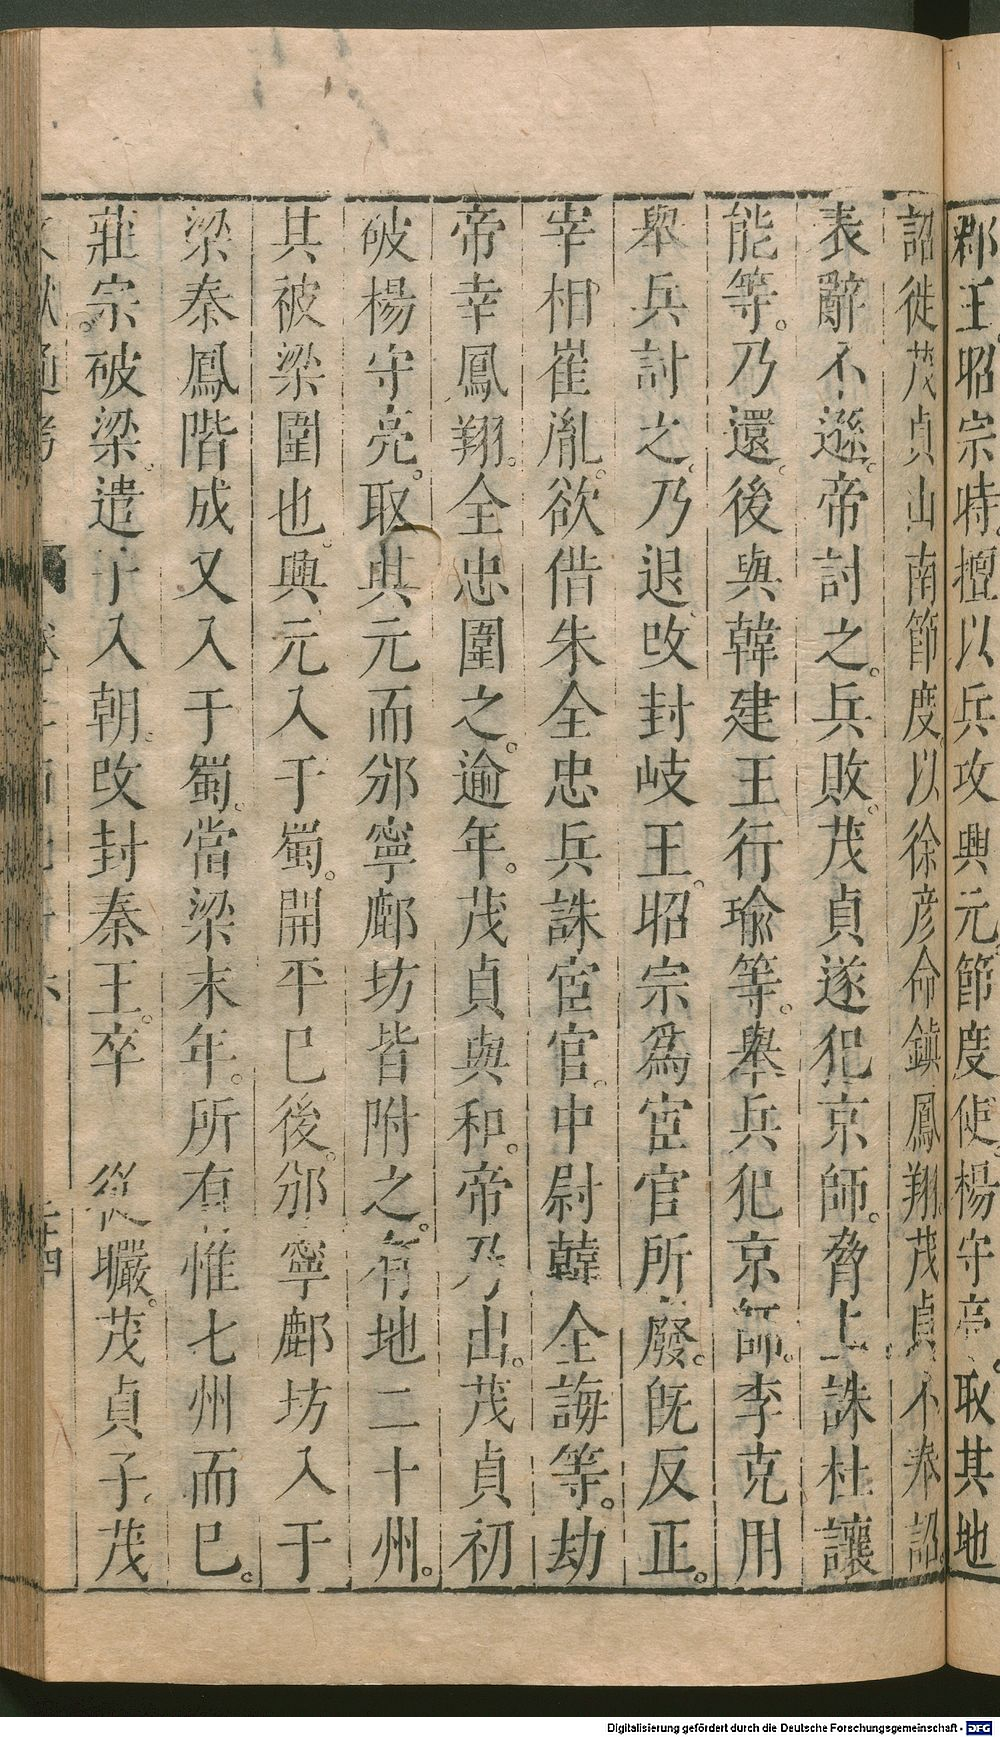 郡王昭宗時擅以兵攻興元節度使楊守亮取其地
詔徙茂貞山南節度以徐彦命鎭鳳翔茂貞不奉詔
表辭不遜帝討之兵敗茂貞遂犯京師脅上誅杜讓
能等乃還後與韓建王行瑜等舉兵犯京師李克用
舉兵討之乃退改封岐王昭宗爲宦官所廢旣反正
宰相崔胤欲借朱全忠兵誅宦官中尉韓全誨等劫
帝幸鳳翔全忠圍之逾年茂貞與和帝乃出茂貞初
破楊守亮取興元而邠寧鄜坊皆附之有地二十州
其被梁圍也興元入于蜀開平已後邠寧鄜坊入于
梁秦鳳階成又入于蜀當梁末年所有惟七州而已
莊宗破梁遣子入朝改封秦王卒 從曮茂貞子茂
文獻通考
Digitalisierung gefördert durch die Deutsche Forschungsgemeinschaft - DFG